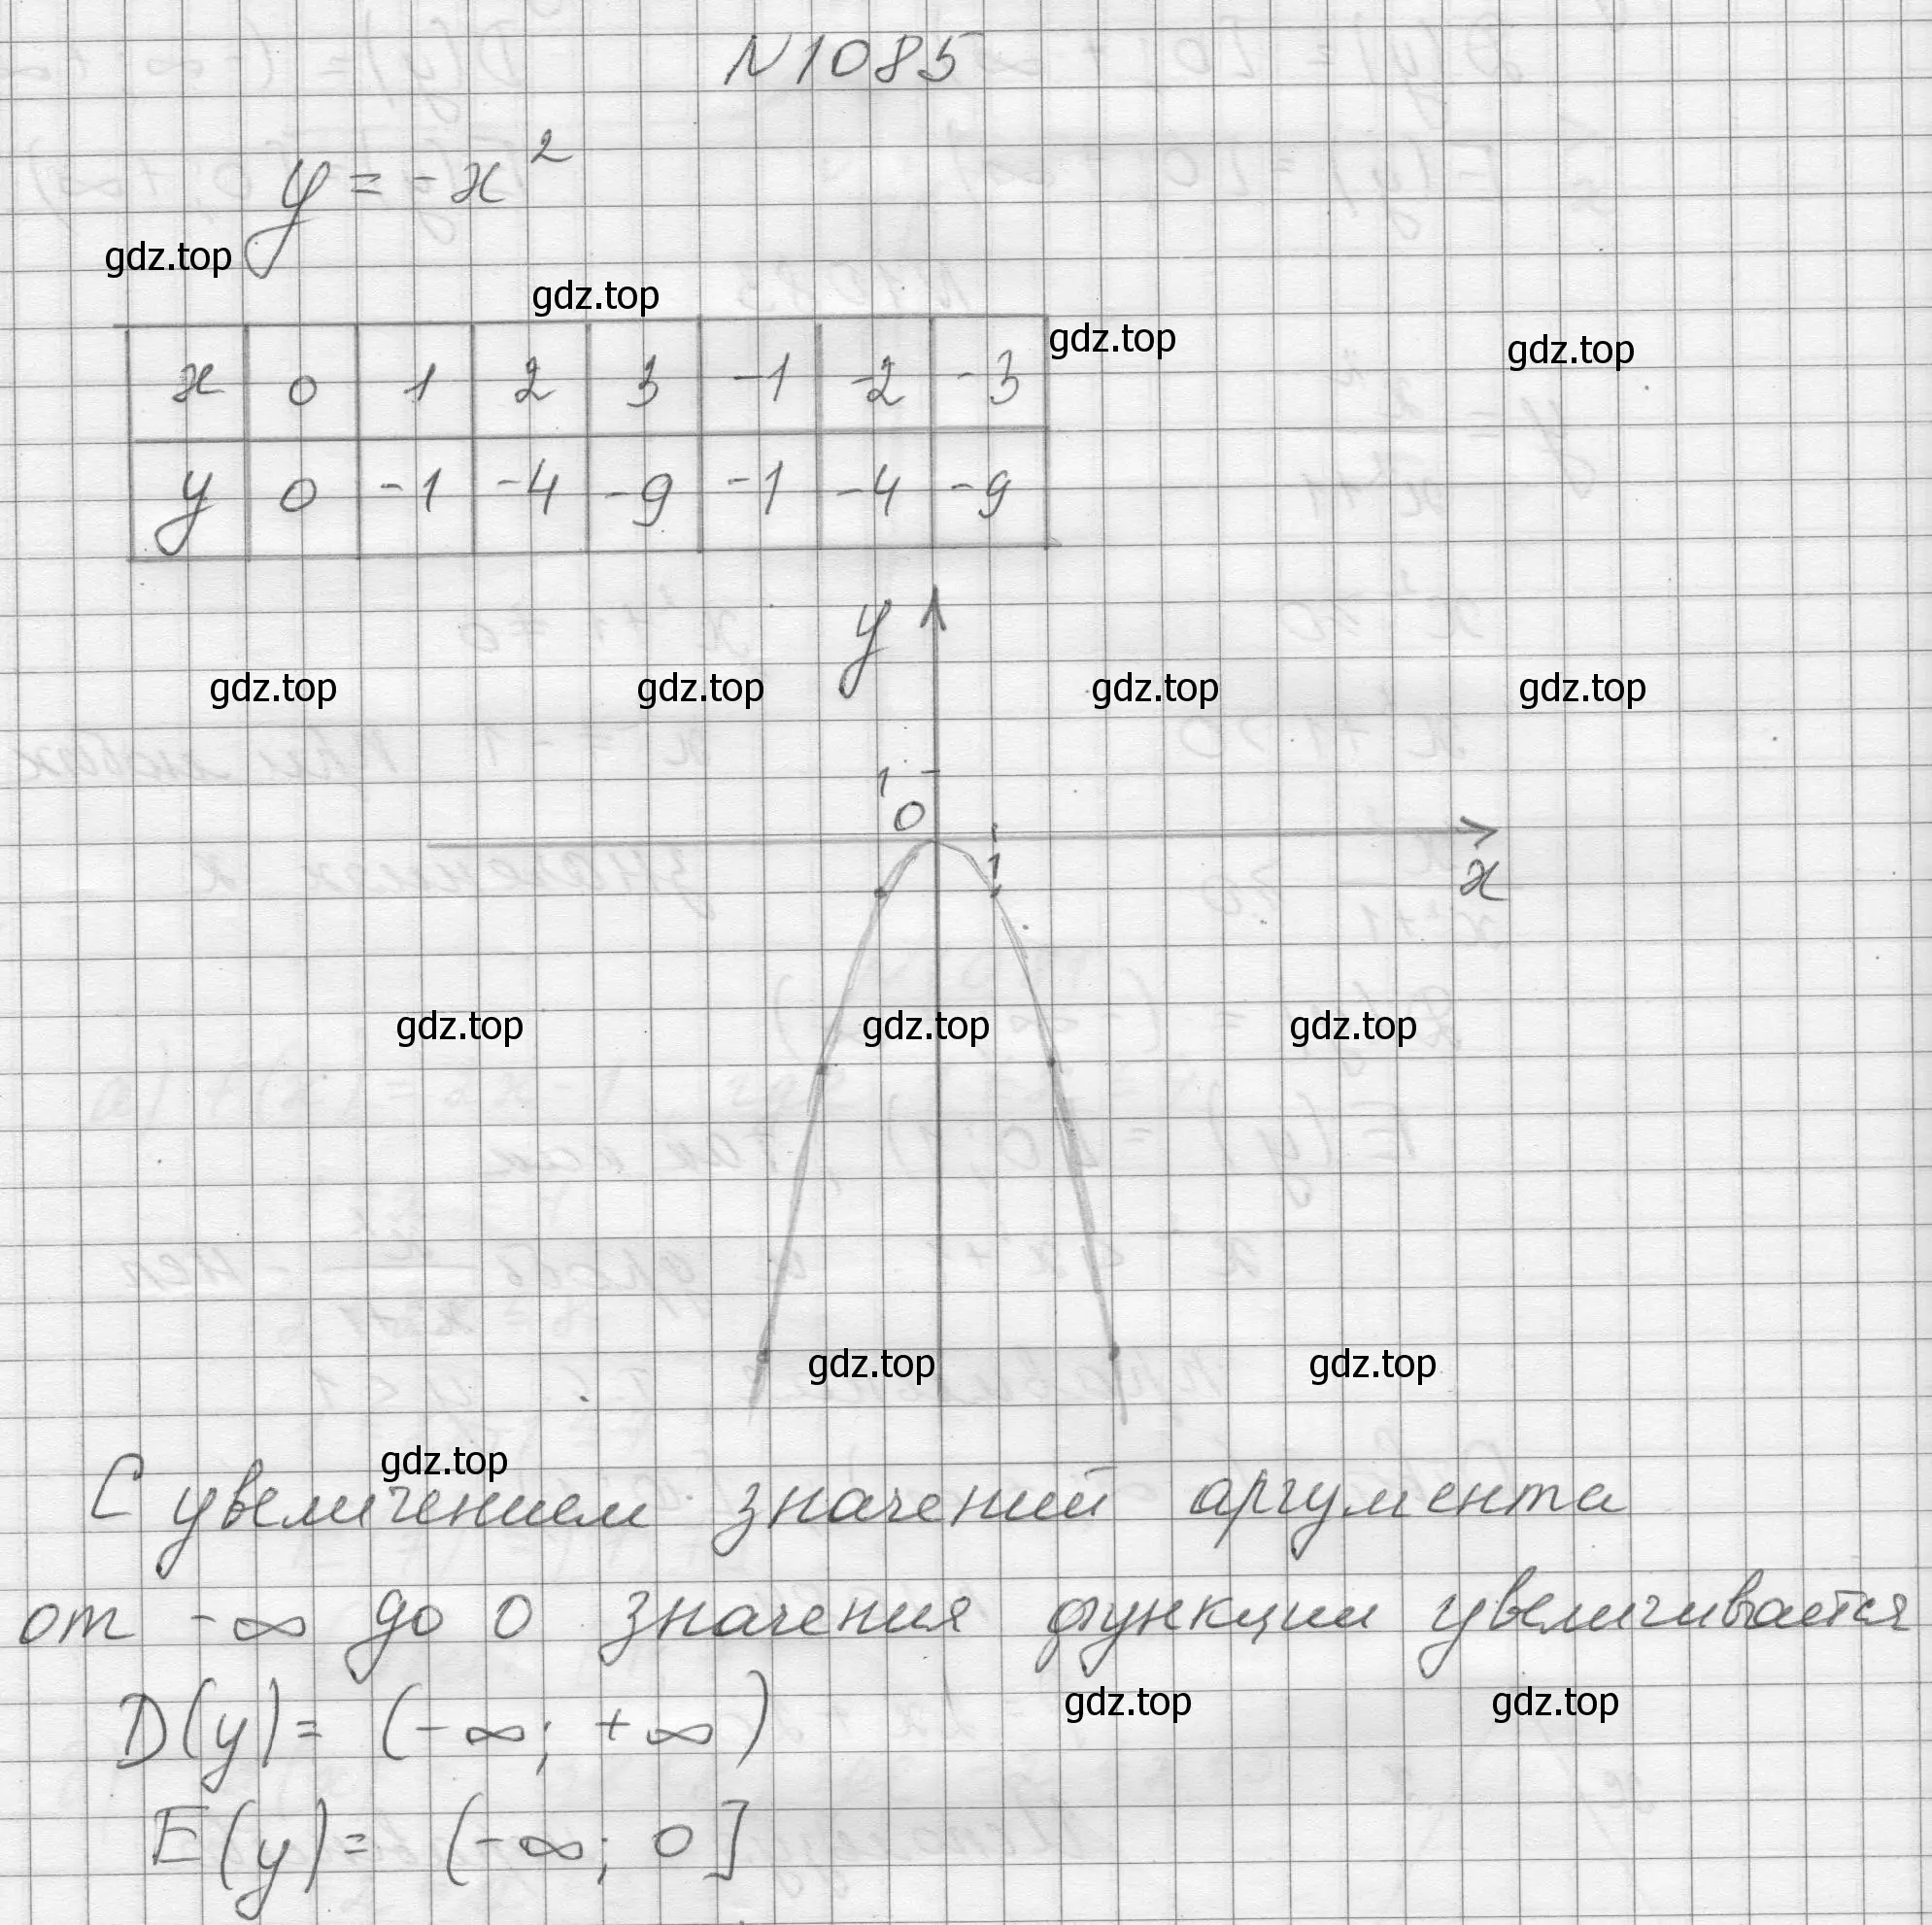 N1085
y = -x²
gdz.top
gdz.top
gdz.top
gdz.top
x 0 1 2 3 -1 -2 -3
y 0 -1 -4 -9 -1 -4 -9
y
gdz.top gdz.top gdz.top gdz.top
1
0
1
x
gdz.top gdz.top gdz.top
gdz.top gdz.top
gdz.top
С увеличением значений аргумента
от -∞ до 0 значения функции увеличивается
D(y) = (-∞; +∞)
gdz.top gdz.top
E(y) = (-∞; 0]